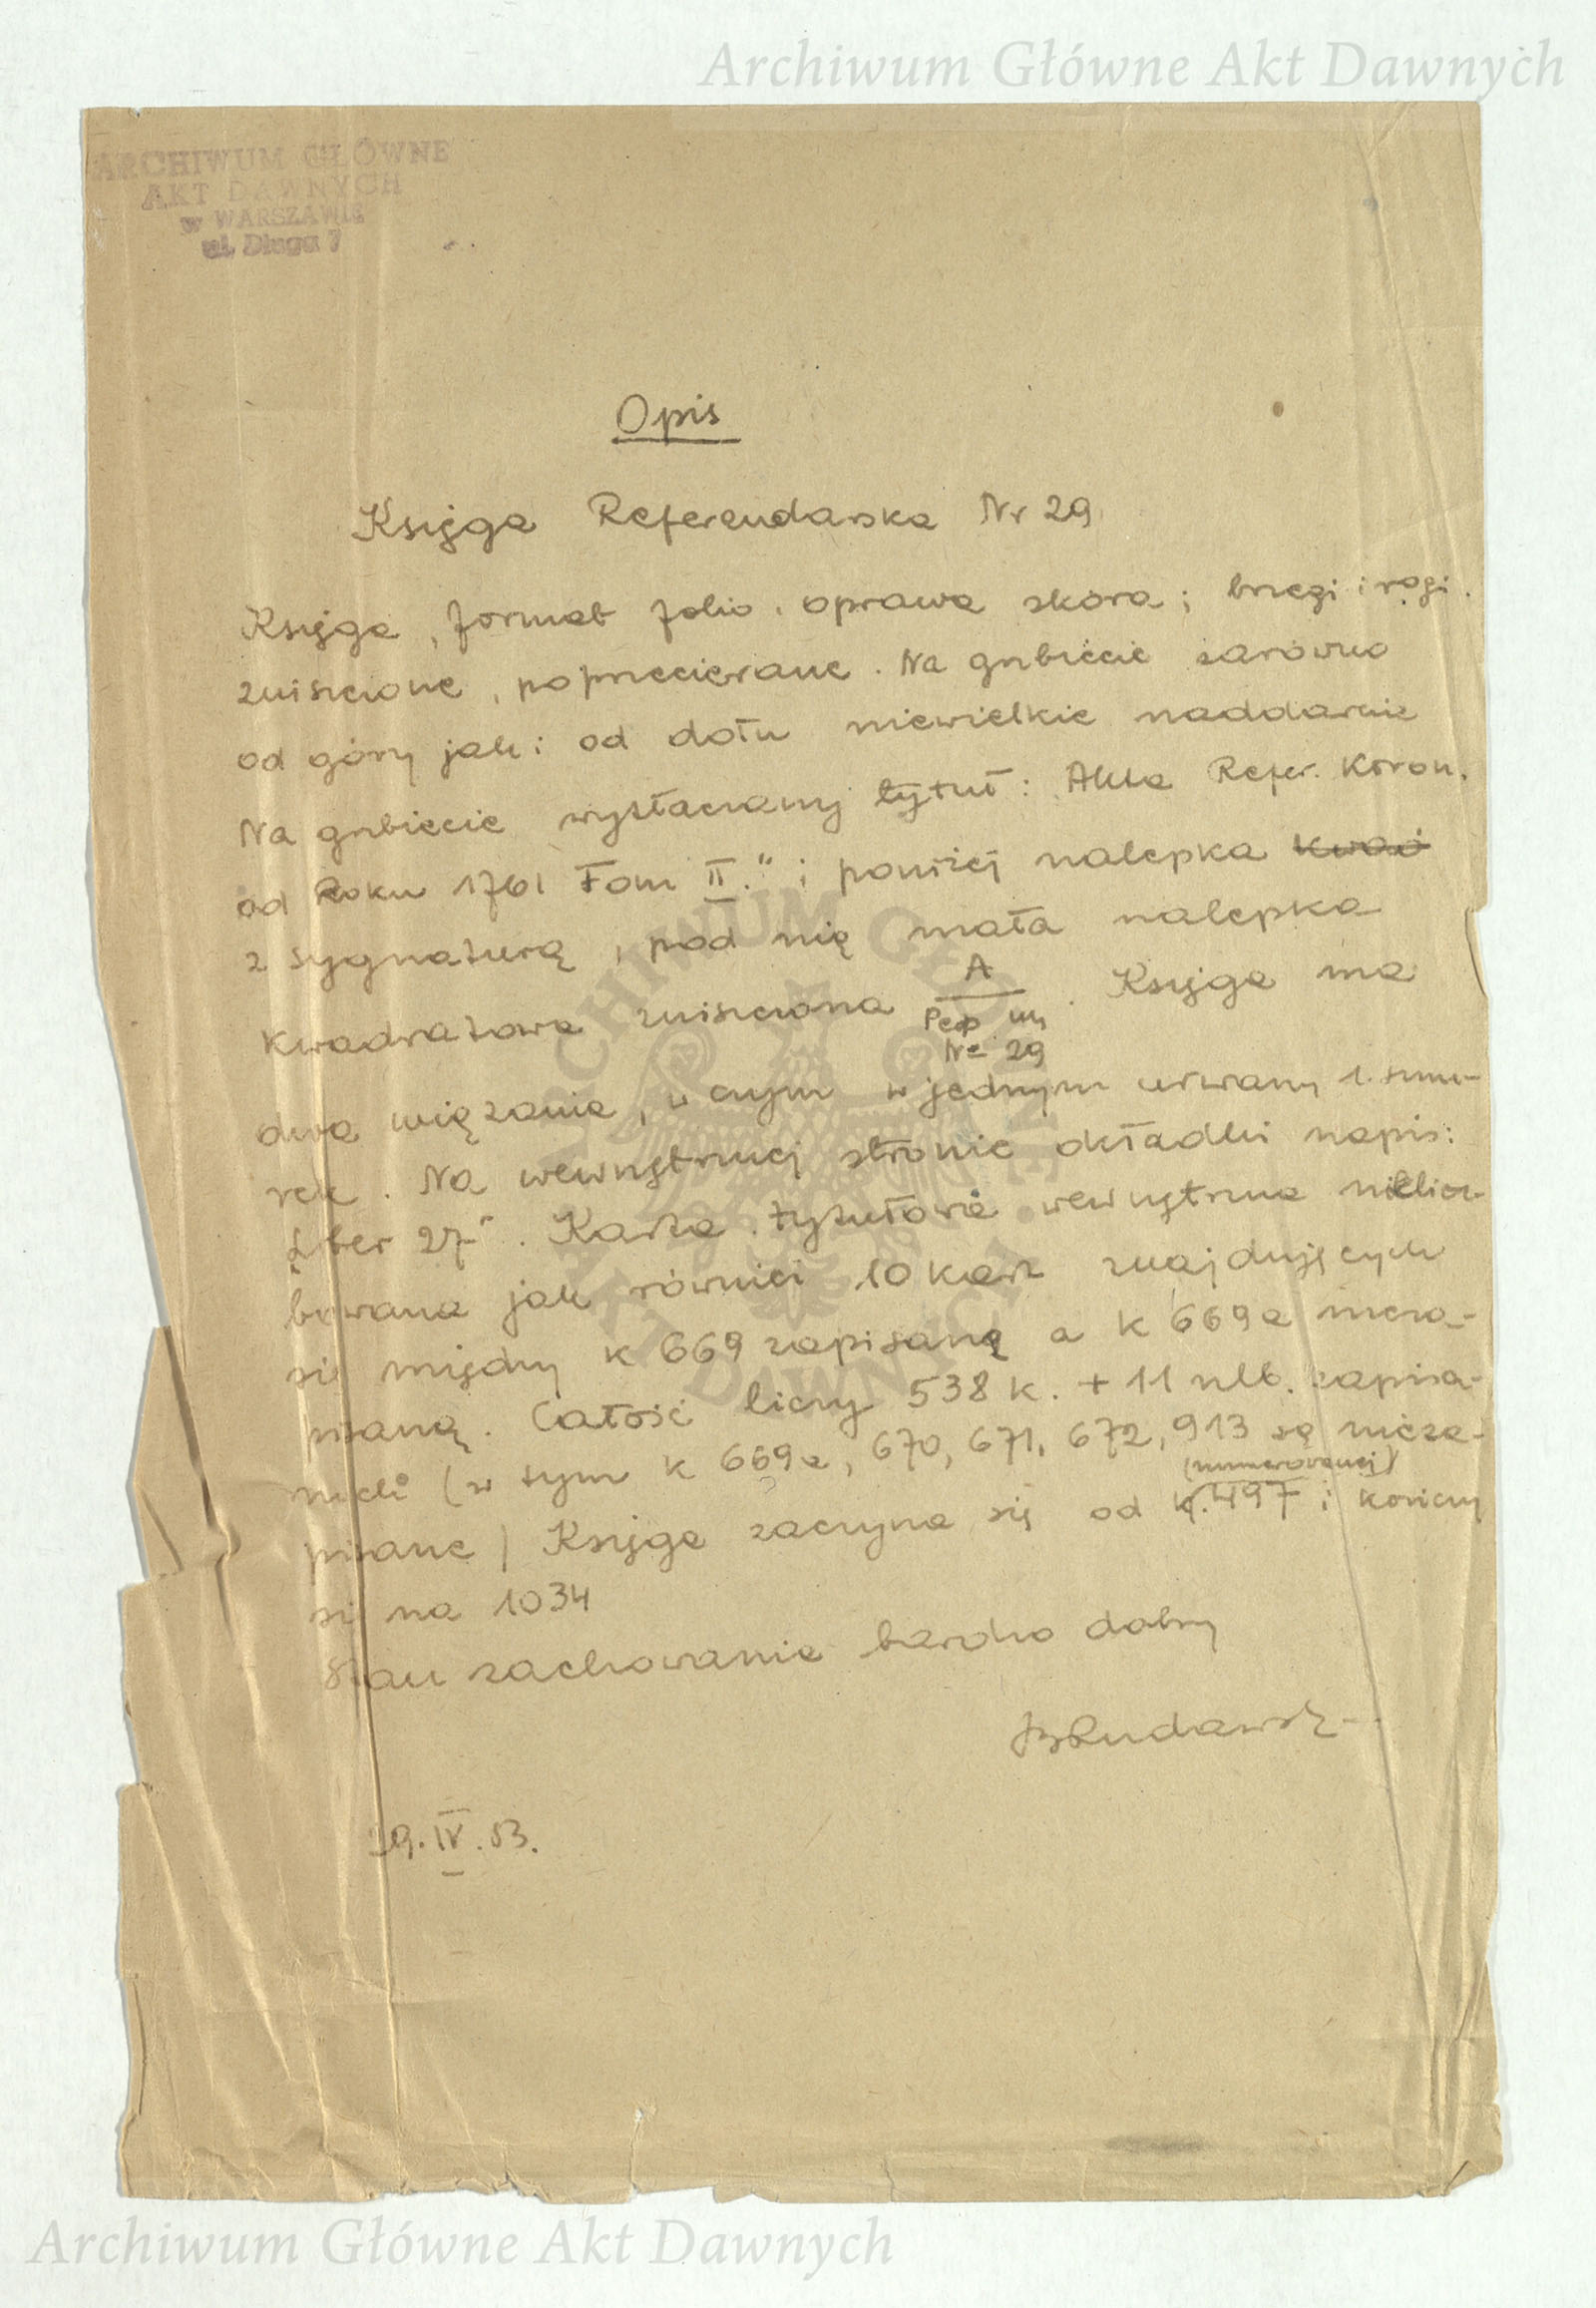 Archiwum Główne Akt Dawnych
ARCHIWUM GŁÓWNE
AKT DAWNYCH
w WARSZAWIE
ul. Długa 7
Opis
Księga Referendarska Nr 29
Księga, format folio, oprawa skóra; brzegi i rogi
zniszczone, poprzecierane. Na grzbiecie zarówno
od góry jak i od dołu niewielkie naddarcie
Na grzbiecie wytłaczany tytuł: Akta Refer. Koron.
od Roku 1761 Tom II." i poniżej nalepka kwad
z sygnaturą, pod nią mała nalepka
kwadratowa zniszczona A . Księga ma
Nº 29
dwa wiązania, w czym w jednym urwany 1 sznu-
rek. Na wewnętrznej stronie okładki napis:
Liber 27". Karta tytułowa wewnętrzna nielicz-
bowana jak również 10 kart znajdujących
się między k 669 zapisaną a k 669a nieza-
pisaną. Całość liczy 538 k. + 11 nlb. zapisa-
nych (w tym k 669a, 670, 671, 672, 913 są nieza-
pisane) Księga zaczyna się od k. 497 (numerowanej) i kończy
się na 1034
Stan zachowania bardzo dobry
29. IV. 53.
ARCHIWUM GŁÓWNE
AKT DAWNYCH
Archiwum Główne Akt Dawnych